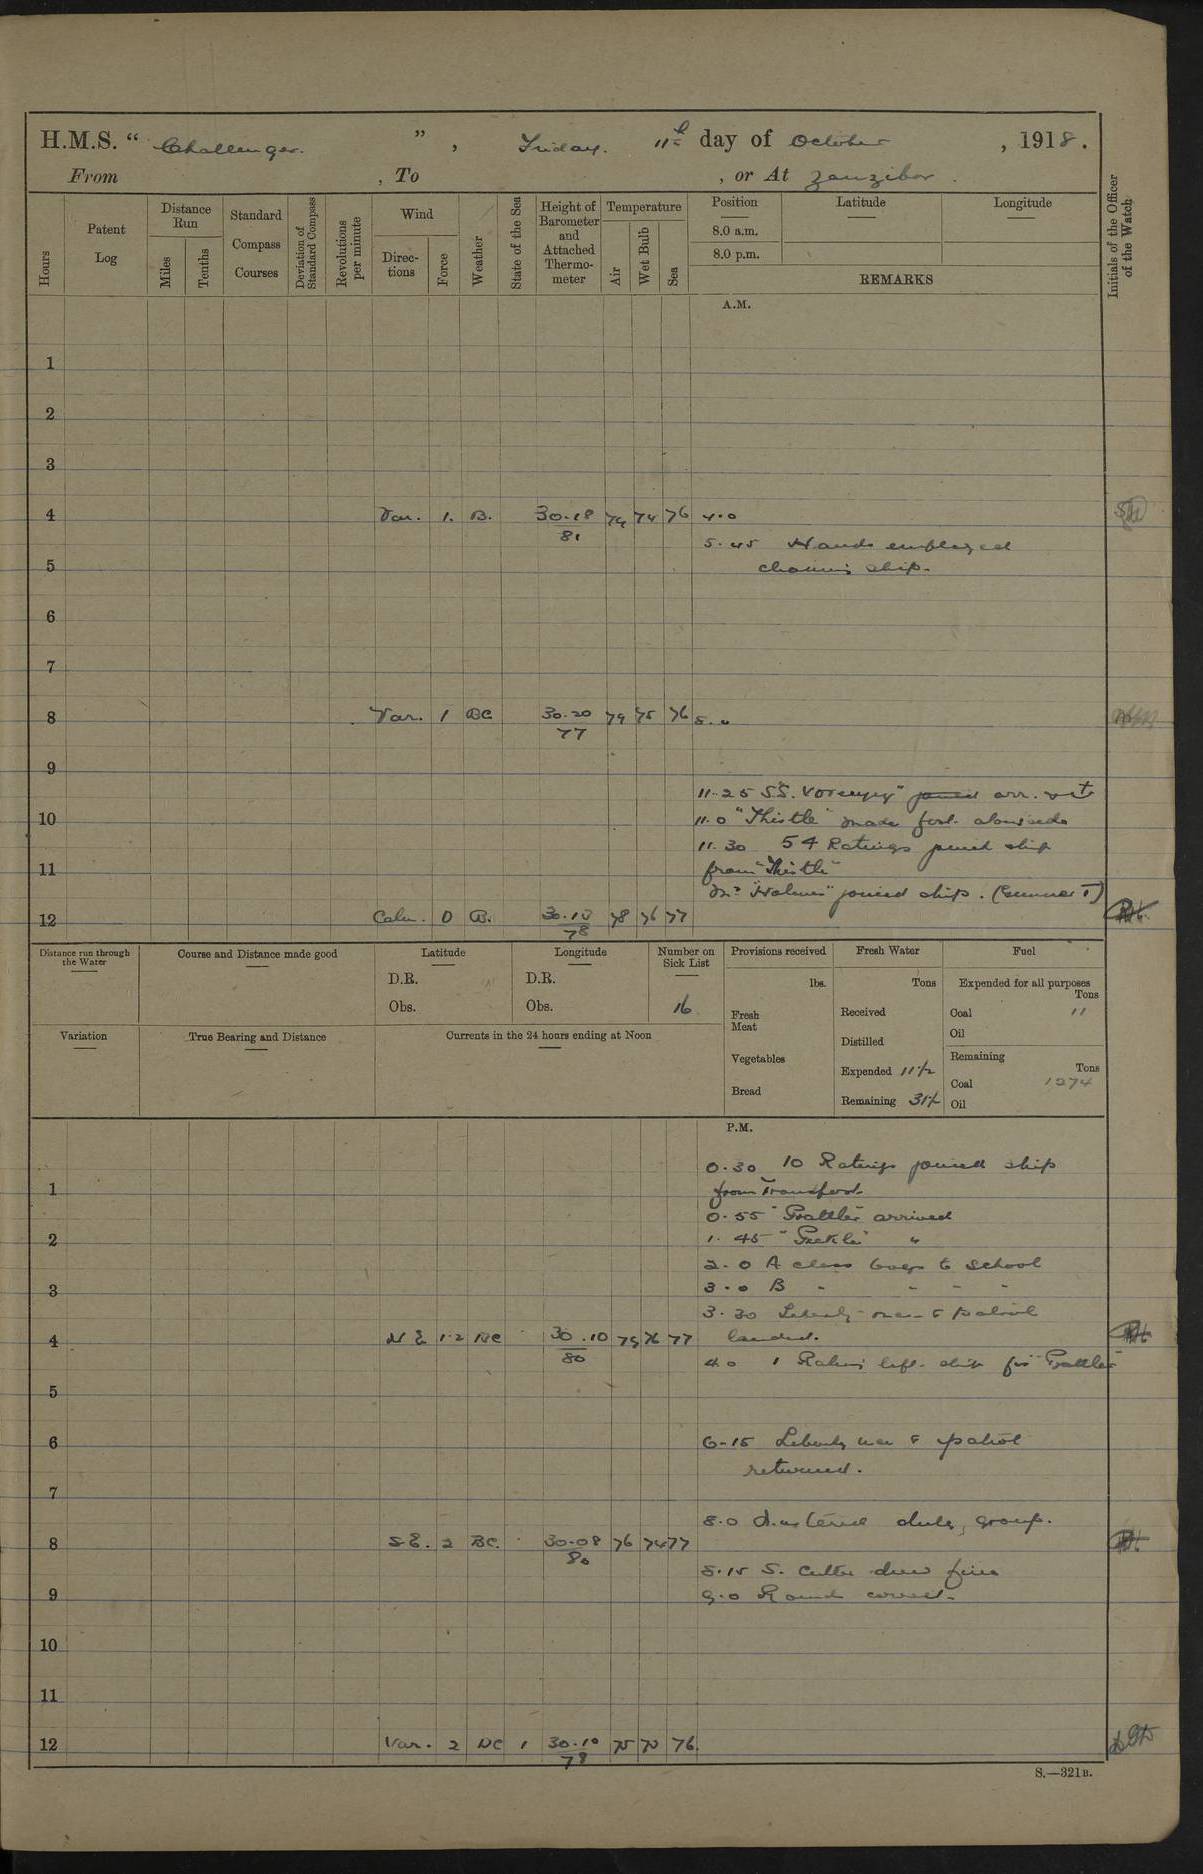 H.M.S. “ Challenger. ” , Friday. 11th day of October , 1918.
From , To , or At Zanzibar .
Hours
Patent Log
Distance Run
Miles
Tenths
Standard Compass Courses
Deviation of Standard Compass
Revolutions per minute
Wind
Direc-tions
Force
Weather
State of the Sea
Height of Barometer and Attached Thermo-meter
Temperature
Air
Wet Bulb
Sea
Position
8.0 a.m.
8.0 p.m.
Latitude
Longitude
REMARKS
Initials of the Officer of the Watch
A.M.
1
2
3
4 Var. 1. B. 30.18 79 74 76 4.0
81
5.45 Hands employed
5
cleaning ship.
6
7
8 Var. 1 BC 30.20 79 75 76 8.0
77
9
11.25 S.S. " arr. with
10
11.0 "Thistle" made fast alongside
11.30 54 Ratings joined ship
11
from "Thistle"
Mr. "Holmes" joined ship. (Gunner T)
12 Calm. 0 B. 30.13 78 76 77
78
Distance run through the Water
Course and Distance made good
Latitude
D.R.
Obs.
Longitude
D.R.
Obs.
Number on Sick List
16
Provisions received
lbs.
Fresh Meat
Vegetables
Bread
Fresh Water
Tons
Received
Distilled
Expended 11½
Remaining
Fuel
Expended for all purposes
Tons
Coal 11
Oil
Remaining
Tons
Coal 1274
Oil
Variation
True Bearing and Distance
Currents in the 24 hours ending at Noon
P.M.
0.30 10 Ratings joined ship
1
from Transport.
0.55 "Prattler" arrived
2
1.45 " "
2.0 A class boys to School
3
3.0 B - - - -
3.30 Liberty men & patrol
4 N E 1.2 BC 30.10 79 76 77 landed.
80
4.0 1 Rating left ship for "Prattler"
5
6 6.15 Liberty men & patrol
returned.
7
8.0 Mustered duty group.
8 S.E. 2 BC. 30.08 76 74 77
80
8.15 S. Cutter drew fires
9 9.0 Rounds correct.
10
11
12 Var. 2 BC 1 30.10 75 73 76
78
S.—321B.